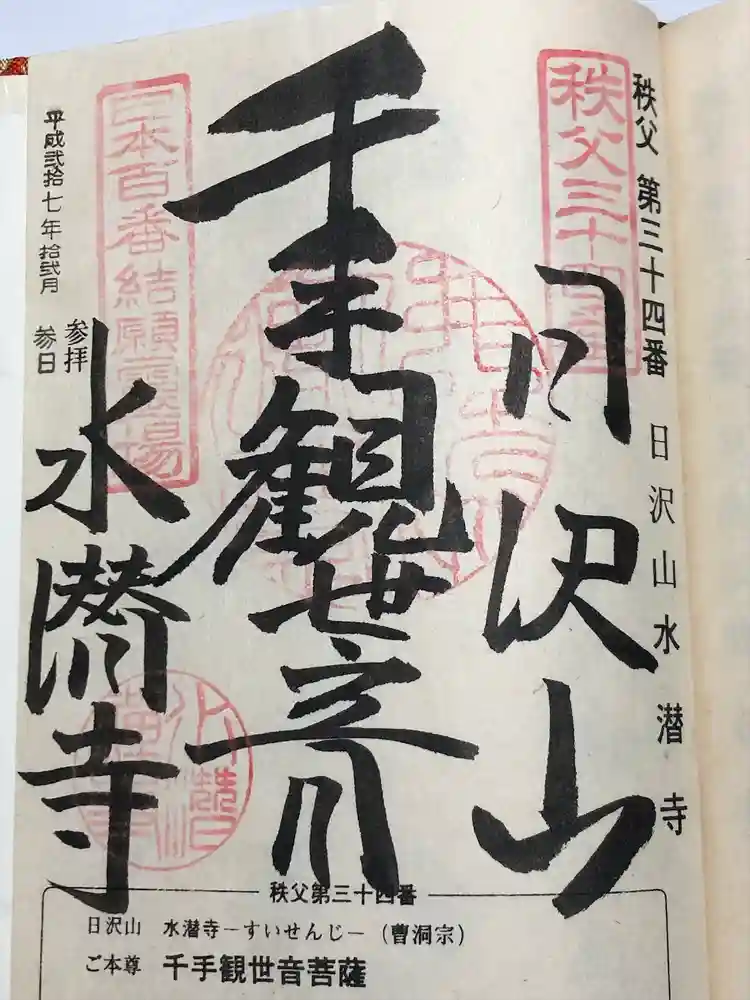 秩父 第三十四番 日沢山水潜寺
秩父三十四番
日沢山
千手観世音
日本百番結願霊場
水潜寺
平成弐拾七年拾弐月
参拝
参日
秩父第三十四番
日沢山 水潜寺－すいせんじ－（曹洞宗）
ご本尊 千手観世音菩薩